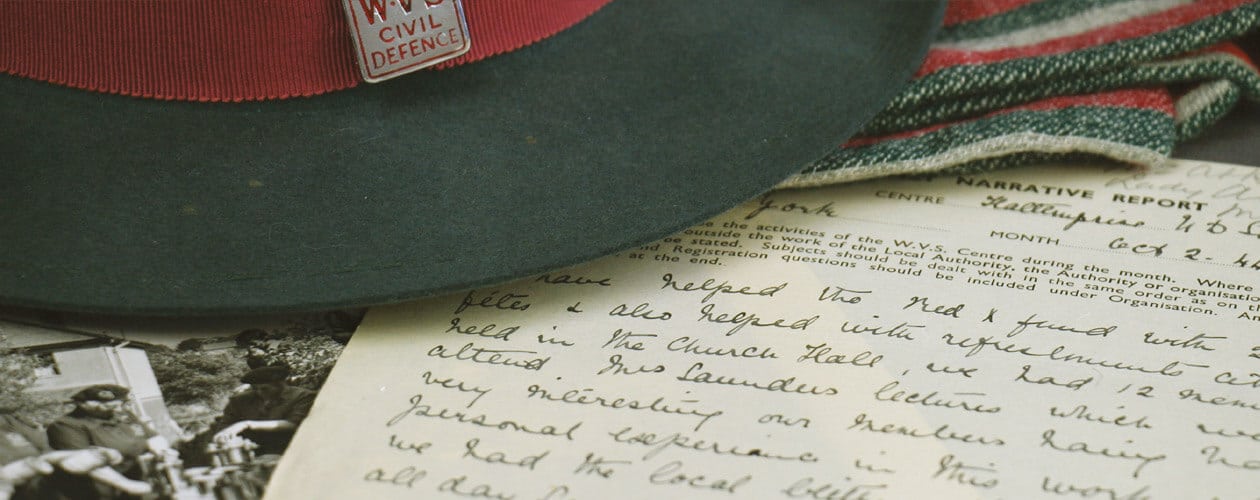 W.V.S
CIVIL
DEFENCE
NARRATIVE REPORT
CENTRE
York
MONTH Oct 2. 44
the activities of the W.V.S. Centre during the month. Where
outside the work of the Local Authority, the Authority or organisati
be stated. Subjects should be dealt with in the same order as on
and Registration questions should be included under Organisation. An
at the end.
have helped the Red X fund with
fêtes & also helped with refreshments
held in the Church Hall, we had 12 mem
attend Mrs Saunders lectures which
very interesting our members having
personal experience in this wor
we had the local
all day